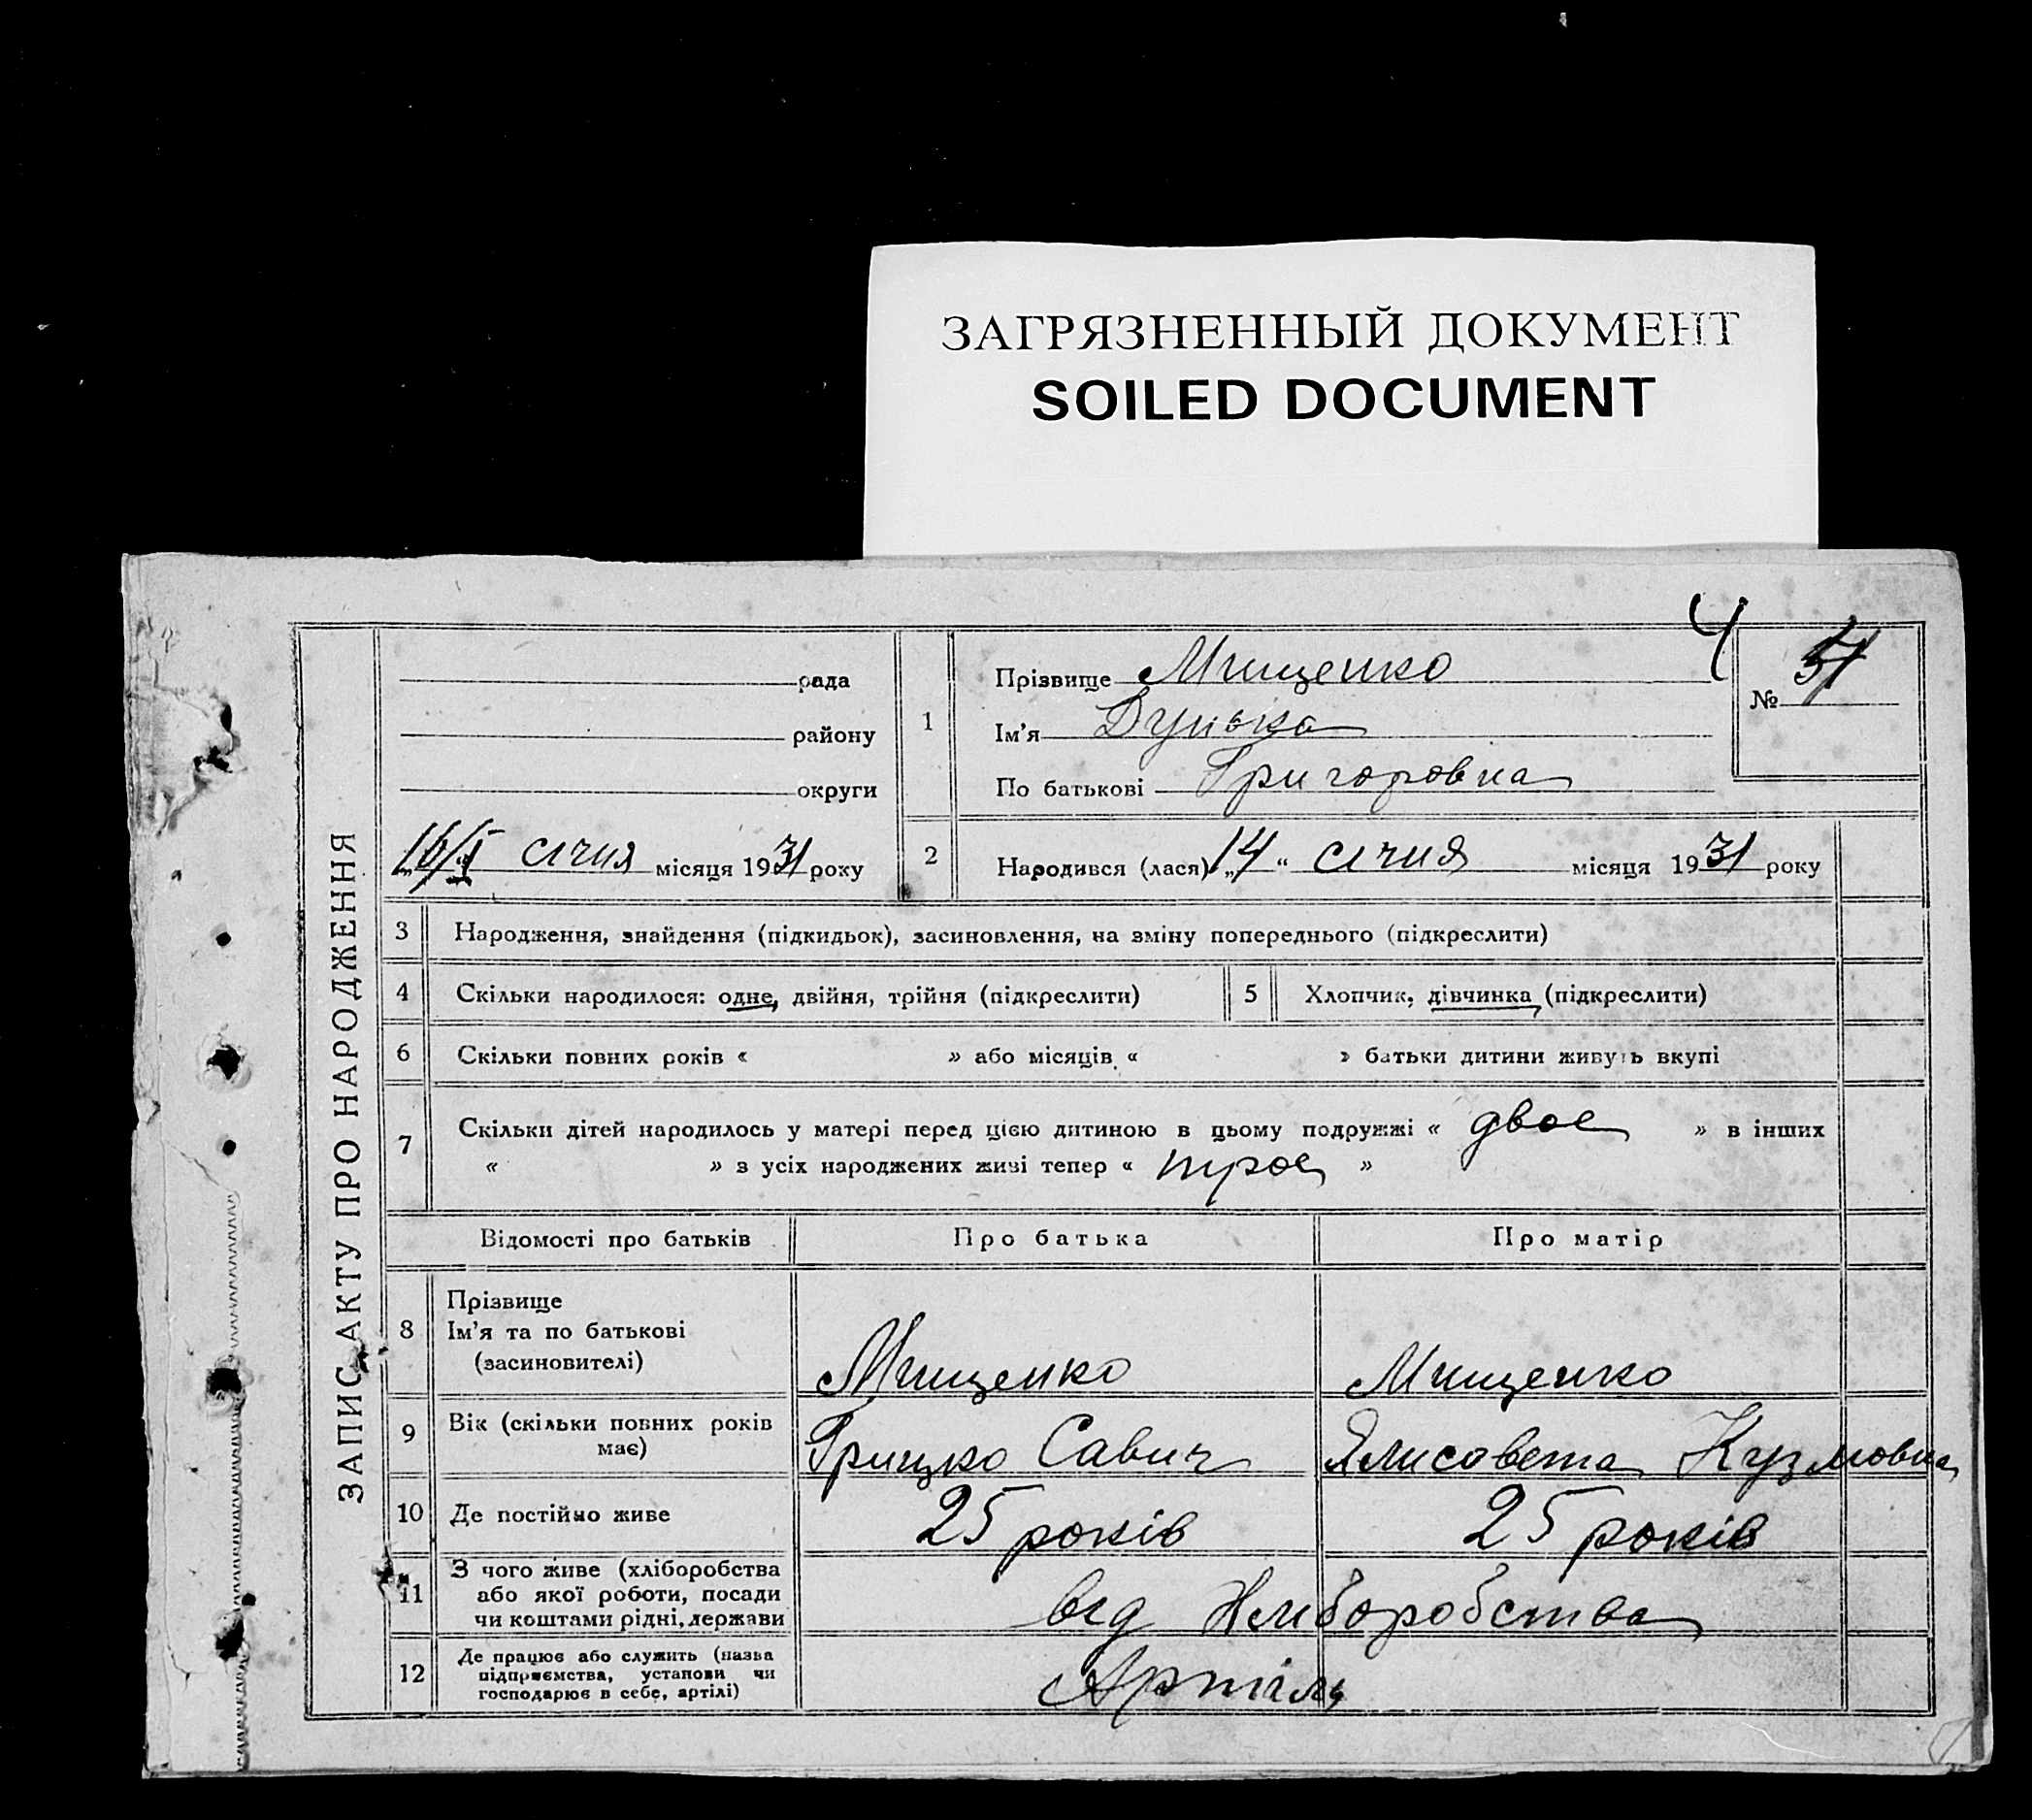 ЗАГРЯЗНЕННЫЙ ДОКУМЕНТ
SOILED DOCUMENT
4
ЗАПИС АКТУ ПРО НАРОДЖЕННЯ
рада
району
округи
16/I січня місяця 1931 року
1
Прізвище Мищенко
Ім'я Дунька
По батькові Григоровна
№
2
Народився (лася) „14“ січня місяця 1931 року
3 Народження, знайдення (підкидьок), засиновлення, на зміну попереднього (підкреслити)
4 Скільки народилося: одне, двійня, трійня (підкреслити) 5 Хлопчик, дівчинка (підкреслити)
6 Скільки повних років « » або місяців « » батьки дитини живуть вкупі
7 Скільки дітей народилось у матері перед цією дитиною в цьому подружжі « двое » в інших
« » з усіх народжених живі тепер « трое »
Відомості про батьків Про батька Про матір
8 Прізвище
Ім'я та по батькові
(засиновителі)
Мищенко Мищенко
9 Вік (скільки повних років
має)
Грицко Савич Елисавета Кузмовна
10 Де постійно живе 25 років 25 років
11 З чого живе (хліборобства
або якої роботи, посади
чи коштами рідні, держави
від Хліборобства
12 Де працює або служить (назва
підприємства, установи чи
господарює в себе, артілі)
Артіль